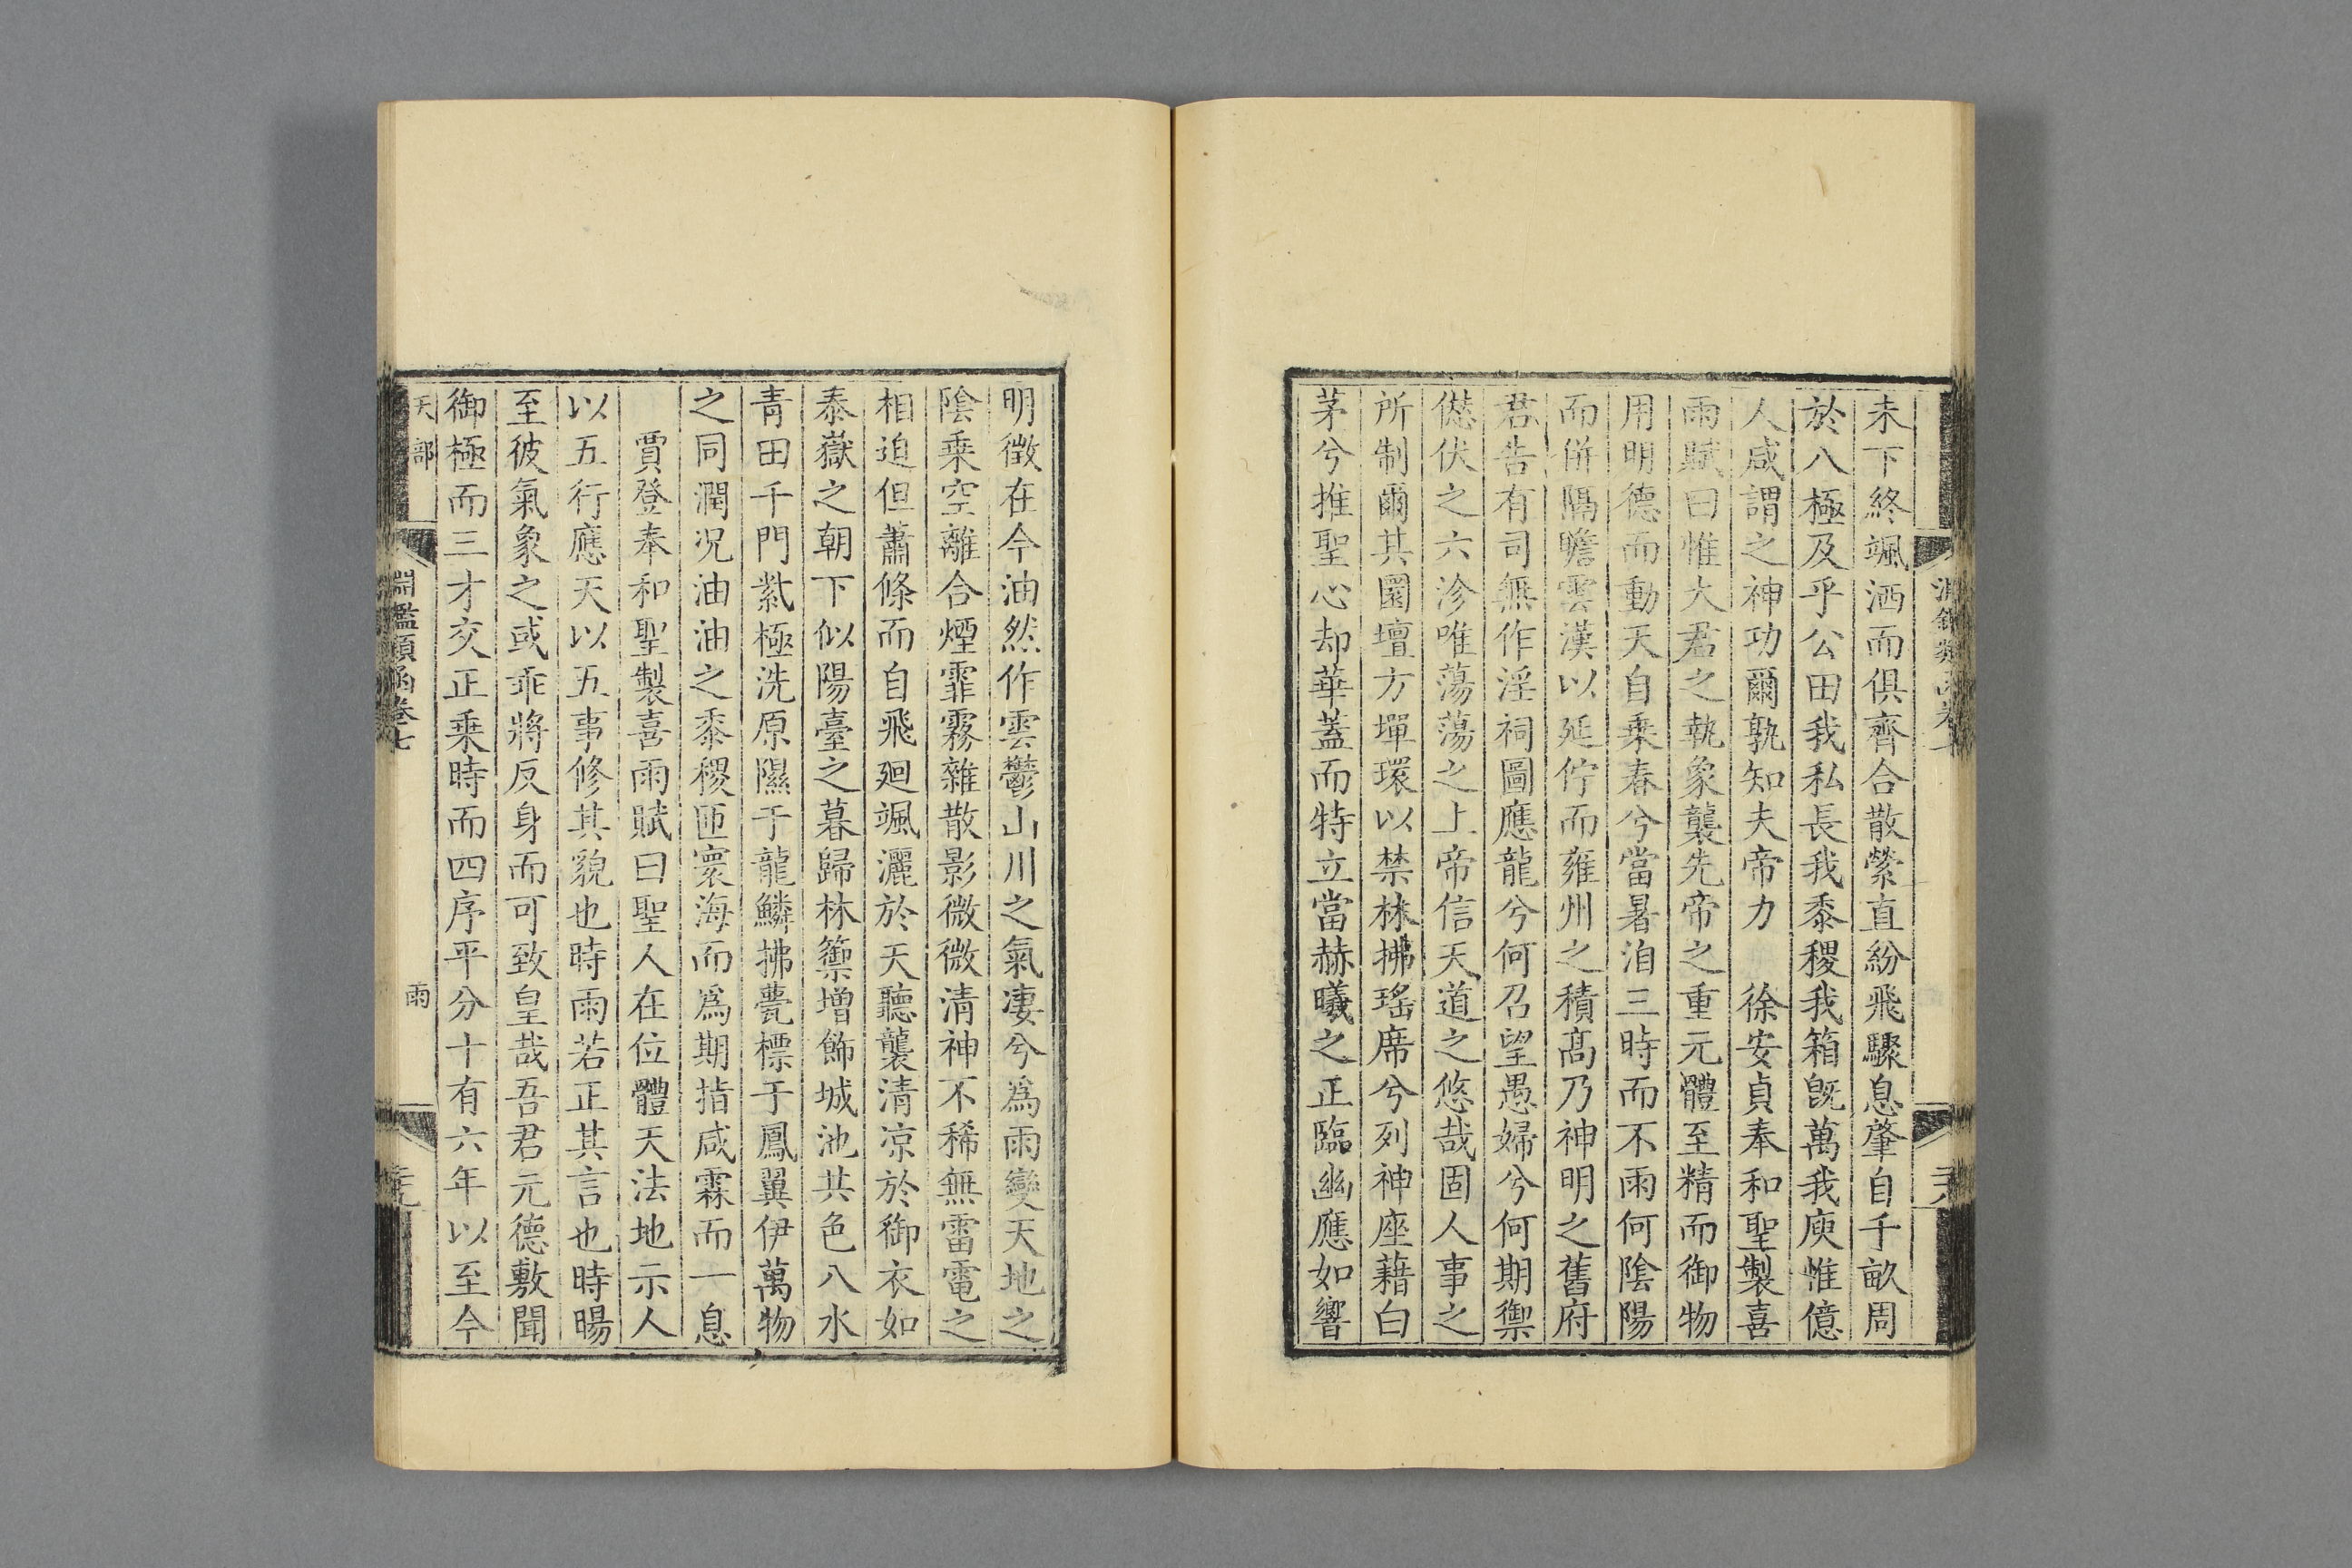 未下終颯洒而俱齊合散縈直紛飛驟息肇自千畝周
於八極及乎公田我私長我黍稷我箱旣萬我庾惟億
人咸謂之神功爾孰知夫帝力　徐安貞奉和聖製喜
雨賦曰惟大君之執象襲先帝之重元體至精而御物
用明德而動天自乗春兮當暑洎三時而不雨何陰陽
而併隔瞻雲漢以延佇而雍州之積髙乃神明之舊府
君告有司無作淫祠圖應龍兮何召望愚婦兮何期禦
僁伏之六沴唯蕩蕩之上帝信天道之悠哉固人事之
所制爾其圜壇方墠環以禁林拂瑤席兮列神座藉白
茅兮推聖心却華蓋而特立當赫曦之正臨幽應如響
明徴在今油然作雲鬱山川之氣凄兮爲雨變天地之
陰乗空離合煙霏霧雜散影微微清神不稀無雷電之
相迫但蕭條而自飛廻颯灑於天聽襲清凉於御衣如
泰嶽之朝下似陽臺之暮歸林籞增飾城池共色八水
青田千門紫極洗原隰于龍鱗拂甍標于鳳翼伊萬物
之同潤况油油之黍稷匝寰海而爲期指咸霖而一息
賈登奉和聖製喜雨賦曰聖人在位體天法地示人
以五行應天以五事修其貌也時雨若正其言也時暘
至彼氣象之或乖將反身而可致皇哉吾君元德敷聞
御極而三才交正乗時而四序平分十有六年以至今
天部
淵鑑類函卷七
雨